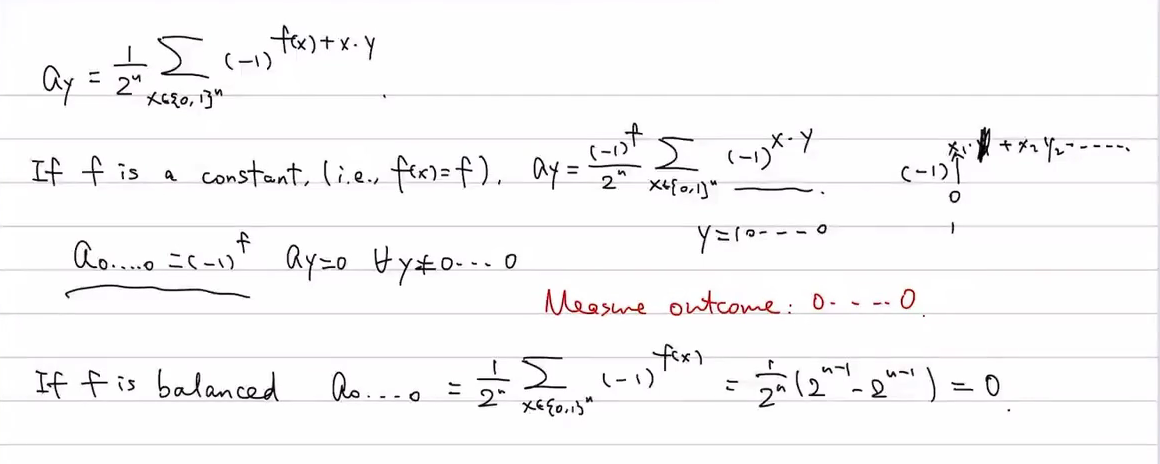 a_y = 1/2^n Σ_{x∈{0,1}^n} (-1)^{f(x)+x·y}.
If f is a constant, (i.e., f(x)=f), a_y = (-1)^f/2^n Σ_{x∈{0,1}^n} (-1)^{x·y}. (-1)^{x₁· + x₂y₂------}
0
y=10----0 1
a_{0.....0} =(-1)^f a_y=0 ∀y≠0---0
Measure outcome: 0----0.
If f is balanced a_{0....0} = 1/2^n Σ_{x∈{0,1}^n} (-1)^{f(x)} = 1/2^n (2^{n-1} - 2^{n-1}) = 0.